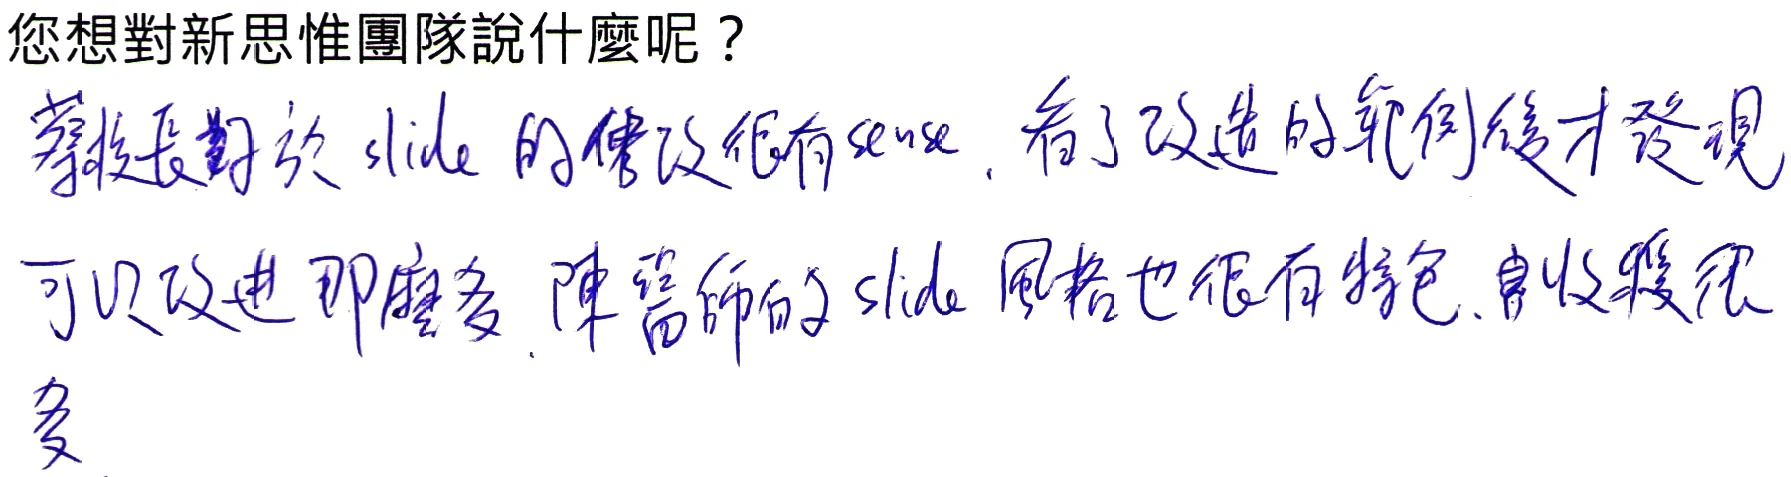 您想對新思惟團隊說什麼呢？
蔡校長對於 slide 的修改很有 sense, 看了改造的範例後才發現
可以改進那麼多, 陳醫師的 slide 風格也很有特色, 收穫很
多